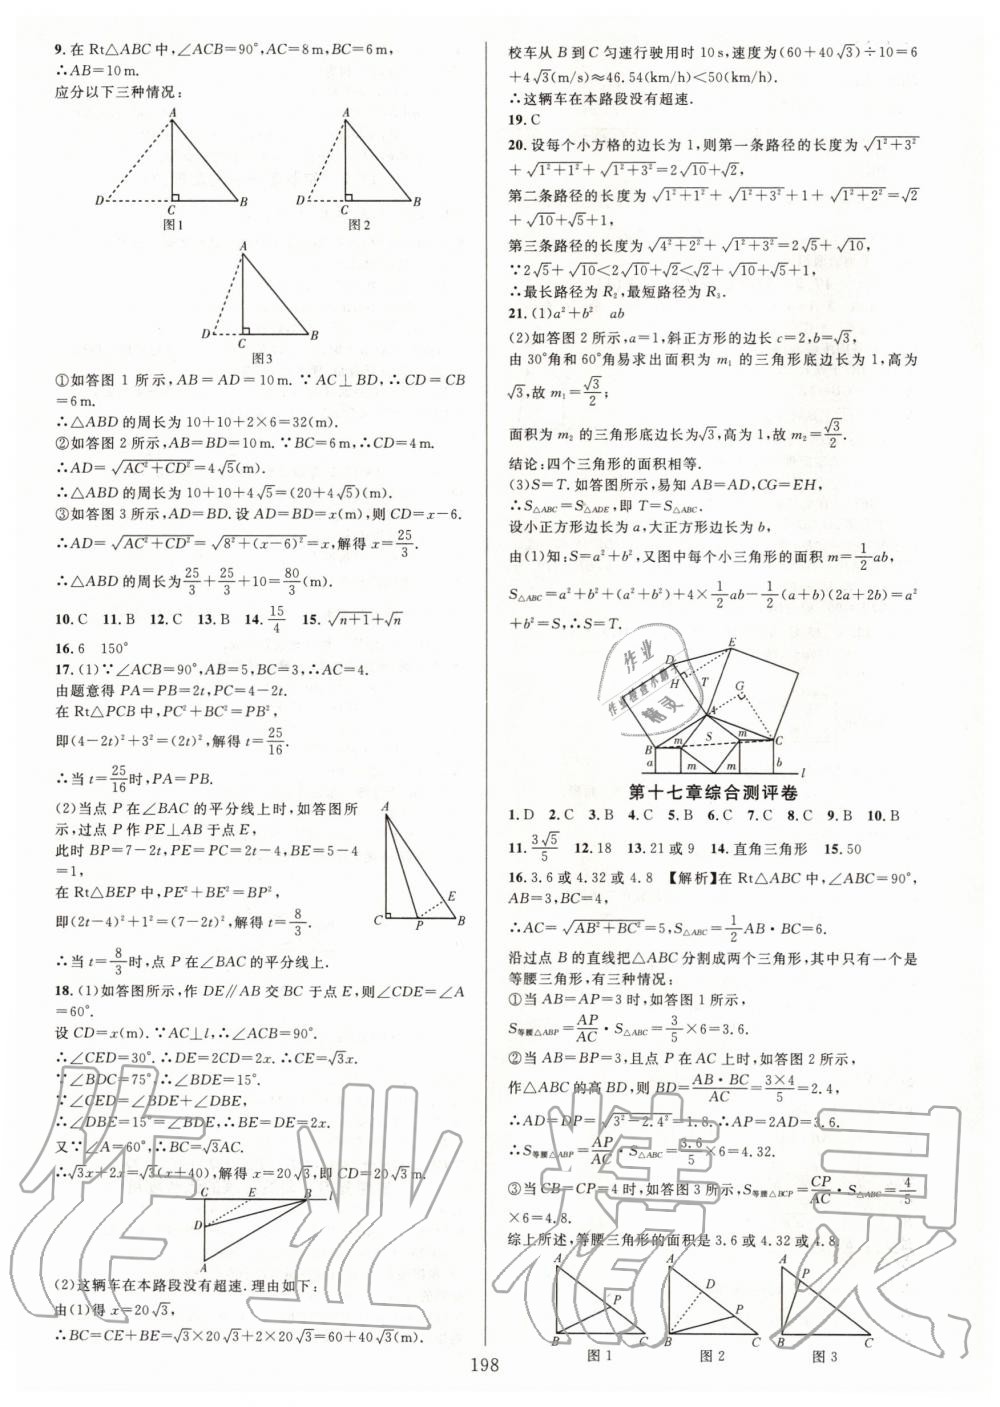 9. 在 Rt△ABC 中,∠ACB=90°,AC=8 m,BC=6 m,
∴AB=10 m.
应分以下三种情况:
A
A
D
C
B
D
C
B
图1
图2
A
D
C
B
图3
①如答图 1 所示,AB=AD=10 m. ∵AC⊥BD,∴CD=CB
=6 m.
∴△ABD 的周长为 10+10+2×6=32(m).
②如答图 2 所示,AB=BD=10 m. ∵BC=6 m,∴CD=4 m.
∴AD=√(AC²+CD²)=4√5(m).
∴△ABD 的周长为 10+10+4√5=(20+4√5)(m).
③如答图 3 所示,AD=BD. 设 AD=BD=x(m),则 CD=x-6.
∴AD=√(AC²+CD²)=√(8²+(x-6)²)=x,解得 x=25/3.
∴△ABD 的周长为25/3+25/3+10=80/3(m).
10. C 11. B 12. C 13. B 14. 15/4 15. √(n+1)+√n
16. 6 150°
17. (1)∵∠ACB=90°,AB=5,BC=3,∴AC=4.
由题意得 PA=PB=2t,PC=4-2t.
在 Rt△PCB 中,PC²+BC²=PB²,
即(4-2t)²+3²=(2t)²,解得 t=25/16.
∴当 t=25/16时,PA=PB.
(2)当点 P 在∠BAC 的平分线上时,如答图所
示,过点 P 作 PE⊥AB 于点 E,
此时 BP=7-2t,PE=PC=2t-4,BE=5-4
=1,
在 Rt△BEP 中,PE²+BE²=BP²,
即(2t-4)²+1²=(7-2t)²,解得 t=8/3.
∴当 t=8/3时,点 P 在∠BAC 的平分线上.
A
E
C
P
B
18. (1)如答图所示,作 DE∥AB 交 BC 于点 E,则∠CDE=∠A
=60°.
设 CD=x(m). ∵AC⊥l,∴∠ACB=90°.
∴∠CED=30°. ∴DE=2CD=2x. ∴CE=√3x.
∵∠BDC=75°,∴∠BDE=15°.
∵∠CED=∠BDE+∠DBE,
∴∠DBE=15°=∠BDE,∴BE=DE=2x.
又∵∠A=60°,∴BC=√3AC.
∴√3x+2x=√3(x+40),解得 x=20√3,即 CD=20√3 m.
C
E
B
l
D
A
(2)这辆车在本路段没有超速.理由如下:
由(1)得 x=20√3,
∴BC=CE+BE=√3×20√3+2×20√3=60+40√3(m).
校车从 B 到 C 匀速行驶用时 10 s,速度为(60+40√3)÷10=6
+4√3(m/s)≈46.54(km/h)<50(km/h).
∴这辆车在本路段没有超速.
19. C
20. 设每个小方格的边长为 1,则第一条路径的长度为√(1²+3²)
+√(1²+1²)+√(1²+3²)=2√10+√2,
第二条路径的长度为√(1²+1²)+√(1²+3²)+1+√(1²+2²)=√2
+√10+√5+1,
第三条路径的长度为√(4²+2²)+√(1²+3²)=2√5+√10,
∵2√5+√10<2√10+√2<√2+√10+√5+1,
∴最长路径为 R₂,最短路径为 R₃.
21. (1)a²+b² ab
(2)如答图 2 所示,a=1,斜正方形的边长 c=2,b=√3,
由 30°角和 60°角易求出面积为 m₁ 的三角形底边长为 1,高为
√3,故 m₁=√3/2;
面积为 m₂ 的三角形底边长为√3,高为 1,故 m₂=√3/2.
结论:四个三角形的面积相等.
(3)S=T. 如答图所示,易知 AB=AD,CG=EH,
∴S△ABC=S△ADE,即 T=S△ABC.
设小正方形边长为 a,大正方形边长为 b,
由(1)知:S=a²+b²,又图中每个小三角形的面积 m=1/2ab,
S△ABC=a²+b²+(a²+b²)+4×1/2ab-1/2(a+b)(2a+2b)=a²
+b²=S,∴S=T.
E
D
H
T
G
A
B
m
S
m
C
a
m
m
b
l
第十七章综合测评卷
1. D 2. C 3. B 4. C 5. B 6. C 7. C 8. C 9. B 10. B
11. 3√5/5 12. 18 13. 21 或 9 14. 直角三角形 15. 50
16. 3.6 或 4.32 或 4.8 【解析】在 Rt△ABC 中,∠ABC=90°,
AB=3,BC=4,
∴AC=√(AB²+BC²)=5,S△ABC=1/2AB·BC=6.
沿过点 B 的直线把△ABC 分割成两个三角形,其中只有一个是
等腰三角形,有三种情况:
①当 AB=AP=3 时,如答图 1 所示,
S等腰△ABP=AP/AC·S△ABC=3/5×6=3.6.
②当 AB=BP=3,且点 P 在 AC 上时,如答图 2 所示,
作△ABC 的高 BD,则 BD=AB·BC/AC=3×4/5=2.4,
∴AD=DP=√(3²-2.4²)=1.8. ∴AP=2AD=3.6.
∴S等腰△ABP=AP/AC·S△ABC=3.6/5×6=4.32.
③当 CB=CP=4 时,如答图 3 所示,S等腰△BCP=CP/AC·S△ABC=4/5
×6=4.8.
综上所述,等腰三角形的面积是 3.6 或 4.32 或 4.8.
A
P
B
C
A
D
P
B
C
A
P
B
C
图 1
图 2
图 3
198
作业精灵
作业
作业检查小助手
精灵